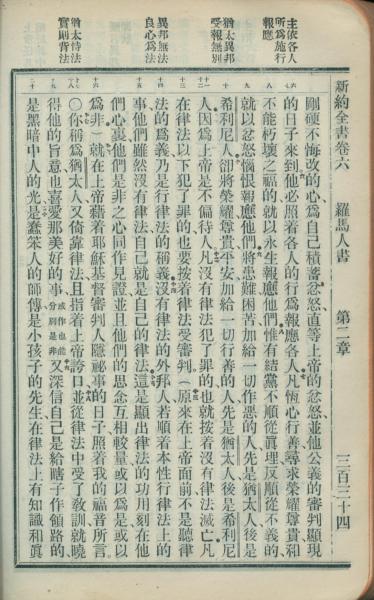 新約全書卷六　羅馬人書　第二章　三百三十四
主依各人
所爲施行
報應
猶太異邦
受報無別
異邦無法
良心爲法
猶太恃法
實則背法
剛硬不悔改的心爲自己積蓄忿怒直等上帝的忿怒並他公義的審判顯現
的日子來到他必照着各人的行爲報應各人凡恆心行善尋求榮耀尊貴和
不能朽壞之福的就以永生報應他們惟有結黨不順從眞理反順從不義的
就以忿怒惱恨報應他們將患難困苦加給一切作惡的人先是猶太人後是
希利尼人卻將榮耀尊貴平安加給一切行善的人先是猶太人後是希利尼
人因爲上帝是不偏待人凡沒有律法犯了罪的也就按着沒有律法滅亡凡
在律法以下犯了罪的也要按着律法受審判（原來在上帝面前不是聽律
法的爲義乃是行律法的稱義沒有律法的外邦人若順着本性行律法上的
事他們雖然沒有律法自己就是自己的律法這是顯出律法的功用刻在他
們心裏他們是非之心同作見證並且他們的思念互相較量或以爲是或以
爲非）就在上帝藉着耶穌基督審判人隱祕事的日子照着我的福音所言
〇你稱爲猶太人又倚靠律法且指着上帝誇口並從律法中受了教訓就曉
得他的旨意也喜愛那美好的事或作也能分別是非又深信自己是給瞎子作領路的
是黑暗中人的光是蠢笨人的師傅是小孩子的先生在律法上有知識和眞